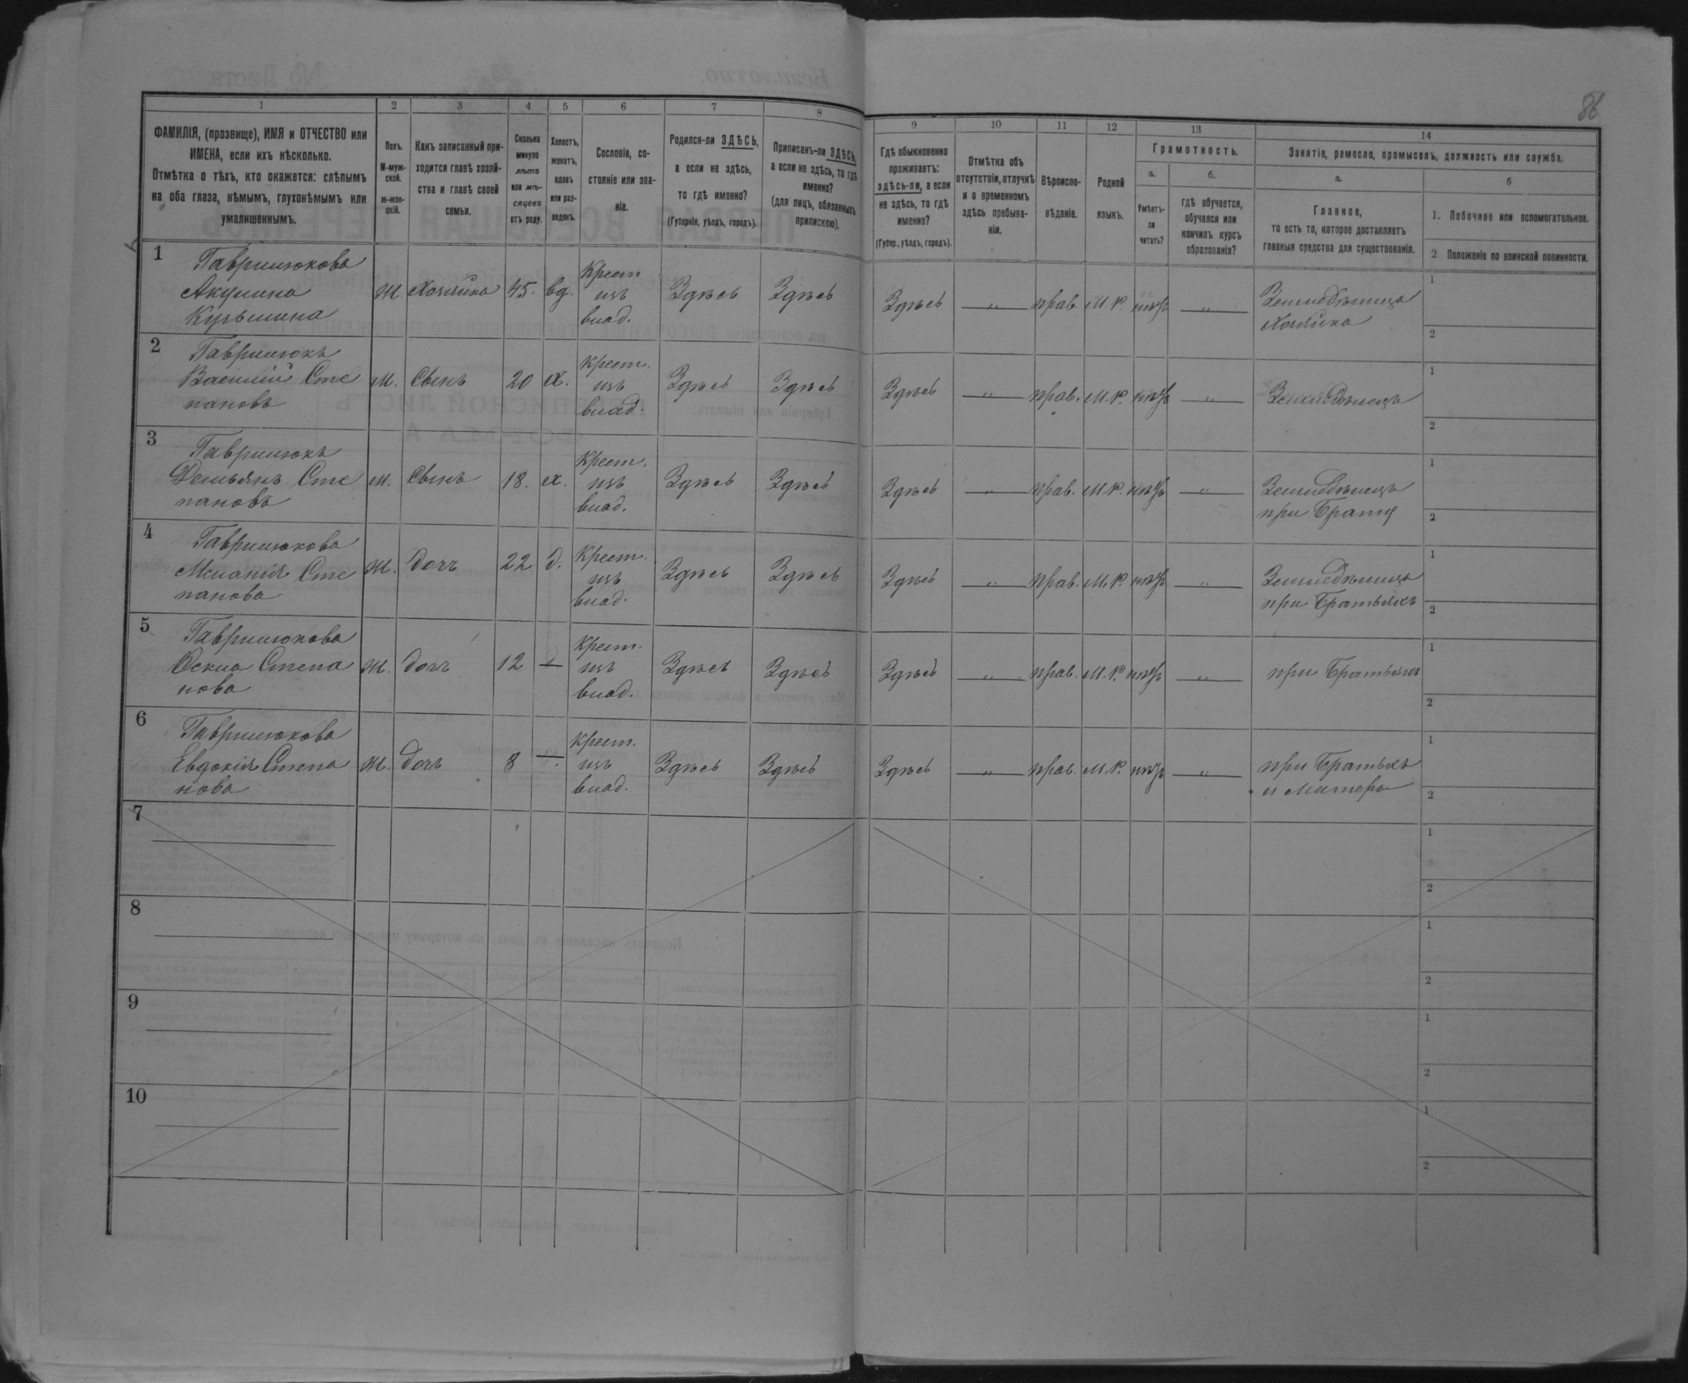 86
1 2 3 4 5 6 7 8 9 10 11 12 13 14
ФАМИЛІЯ, (прозвище), ИМЯ и ОТЧЕСТВО или
ИМЕНА, если ихъ нѣсколько.
Отмѣтка о тѣхъ, кто окажется: слѣпымъ
на оба глаза, нѣмымъ, глухонѣмымъ или
умалишеннымъ.
Полъ.
М-муж-
ской.
Ж-жен-
скій.
Какъ записанный при-
ходится главѣ хозяй-
ства и главѣ своей
семьи.
Сколько
минуло
лѣтъ
или мѣ-
сяцевъ
отъ роду.
Холостъ,
женатъ,
вдовъ
или раз-
веденъ.
Сословіе, со-
стояніе или зва-
ніе.
Родился-ли ЗДѢСЬ,
а если не здѣсь,
то гдѣ именно?
(Губернія, уѣздъ, городъ).
Приписанъ-ли ЗДѢСЬ,
а если не здѣсь, то гдѣ
именно?
(для лицъ, обязанныхъ
припискою).
Гдѣ обыкновенно
проживаетъ:
здѣсь-ли, а если
не здѣсь, то гдѣ
именно?
(Губер., уѣздъ, городъ).
Отмѣтка объ
отсутствіи, отлучкѣ
и о временномъ
здѣсь пребыва-
ніи.
Вѣроиспо-
вѣданіе.
Родной
языкъ.
Грамотность.
а.
Умѣетъ-
ли
читать?
б.
гдѣ обучается,
обучался или
кончилъ курсъ
образованія?
Занятіе, ремесло, промыселъ, должность или служба.
а.
Главное,
то есть то, которое доставляетъ
главныя средства для существованія.
б
1. Побочное или вспомогательное.
2 Положеніе по воинской повинности.
1 Гаврилюкова
Акулина
Кузьмина
Ж. Хозяйка 45. вд. Крест изъ влад. Здѣсь Здѣсь Здѣсь — „ — прав. М.Р. — „ — Земледѣлица
Хозяйка
1
2
2 Гаврилюкъ
Василій Сте
пановъ
М. Сынъ 20 х. Крест. изъ влад. Здѣсь Здѣсь Здѣсь — „ — прав. М.Р. — „ — Земледѣлецъ
1
2
3 Гаврилюкъ
Демьянъ Сте
пановъ
М. Сынъ 18. х. Крест. изъ влад. Здѣсь Здѣсь Здѣсь — „ — прав. М.Р. — „ — Земледѣлецъ
при Братѣ
1
2
4 Гаврилюкова
Меланія Сте
панова
Ж. Дочь 22 д. Крест. изъ влад. Здѣсь Здѣсь Здѣсь — „ — прав. М.Р. — „ — Земледѣлица
при Братьяхъ
1
2
5 Гаврилюкова
Степа
нова
Ж. Дочь 12 — Крест. изъ влад. Здѣсь Здѣсь Здѣсь — „ — прав. М.Р. — „ — при Братьяхъ
1
2
6 Гаврилюкова
Евдокія Степа
нова
Ж. Дочь 8 — Крест. изъ влад. Здѣсь Здѣсь Здѣсь — „ — прав. М.Р. — „ — при Братьяхъ
и Матери
1
2
7
1
2
8
1
2
9
1
2
10
1
2